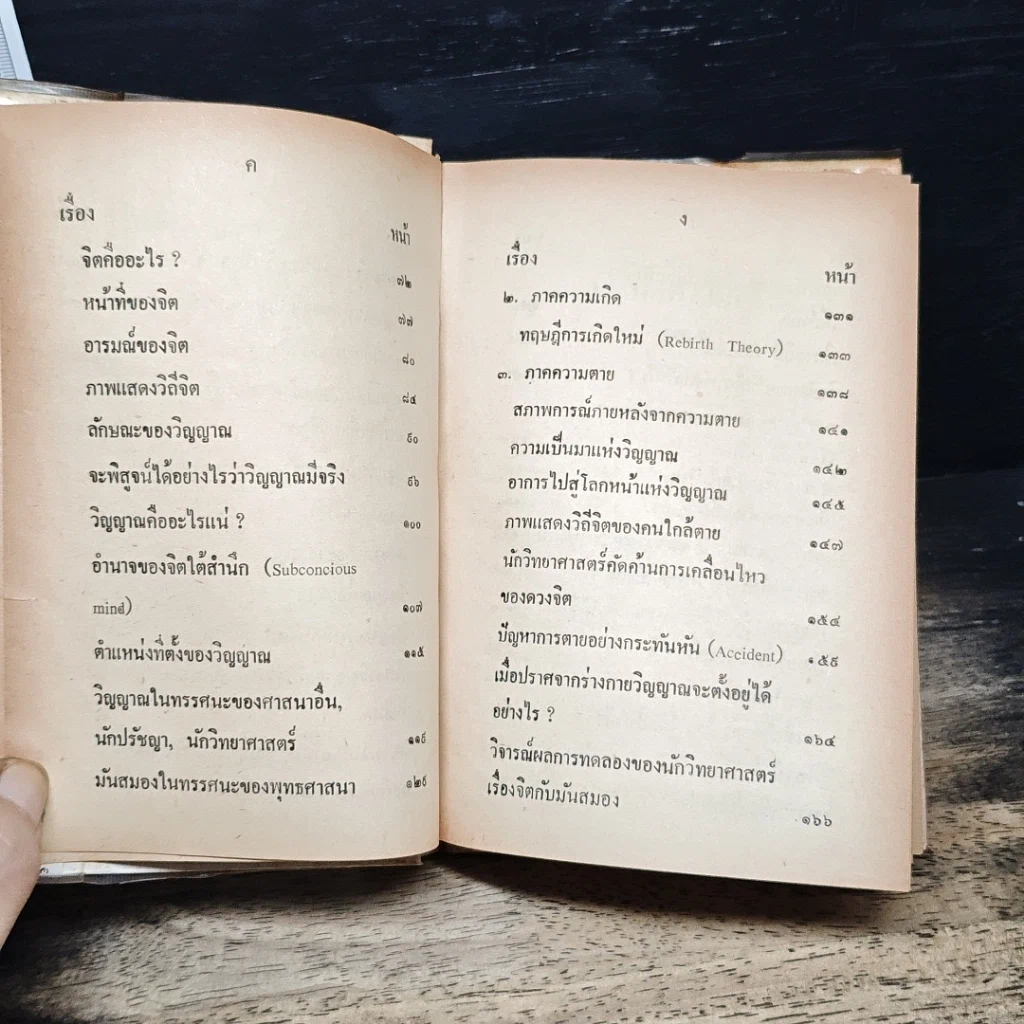 ค
เรื่อง หน้า
จิตคืออะไร ? ๗๒
หน้าที่ของจิต ๗๗
อารมณ์ของจิต ๘๐
ภาพแสดงวิถีจิต ๘๔
ลักษณะของวิญญาณ ๙๐
จะพิสูจน์ได้อย่างไรว่าวิญญาณมีจริง ๙๖
วิญญาณคืออะไรแน่ ? ๑๐๐
อำนาจของจิตใต้สำนึก (Subconcious
mind) ๑๐๗
ตำแหน่งที่ตั้งของวิญญาณ ๑๑๕
วิญญาณในทรรศนะของศาสนาอื่น,
นักปรัชญา, นักวิทยาศาสตร์ ๑๑๙
มันสมองในทรรศนะของพุทธศาสนา ๑๒๙
ง
เรื่อง หน้า
๒. ภาคความเกิด ๑๓๑
ทฤษฎีการเกิดใหม่ (Rebirth Theory) ๑๓๓
๓. ภาคความตาย ๑๓๘
สภาพการณ์ภายหลังจากความตาย ๑๔๑
ความเป็นมาแห่งวิญญาณ ๑๔๒
อาการไปสู่โลกหน้าแห่งวิญญาณ ๑๔๕
ภาพแสดงวิถีจิตของคนใกล้ตาย ๑๔๗
นักวิทยาศาสตร์คัดค้านการเคลื่อนไหว
ของดวงจิต ๑๕๔
ปัญหาการตายอย่างกระทันหัน (Accident) ๑๕๙
เมื่อปราศจากร่างกายวิญญาณจะตั้งอยู่ได้
อย่างไร ? ๑๖๔
วิจารณ์ผลการทดลองของนักวิทยาศาสตร์
เรื่องจิตกับมันสมอง ๑๖๖